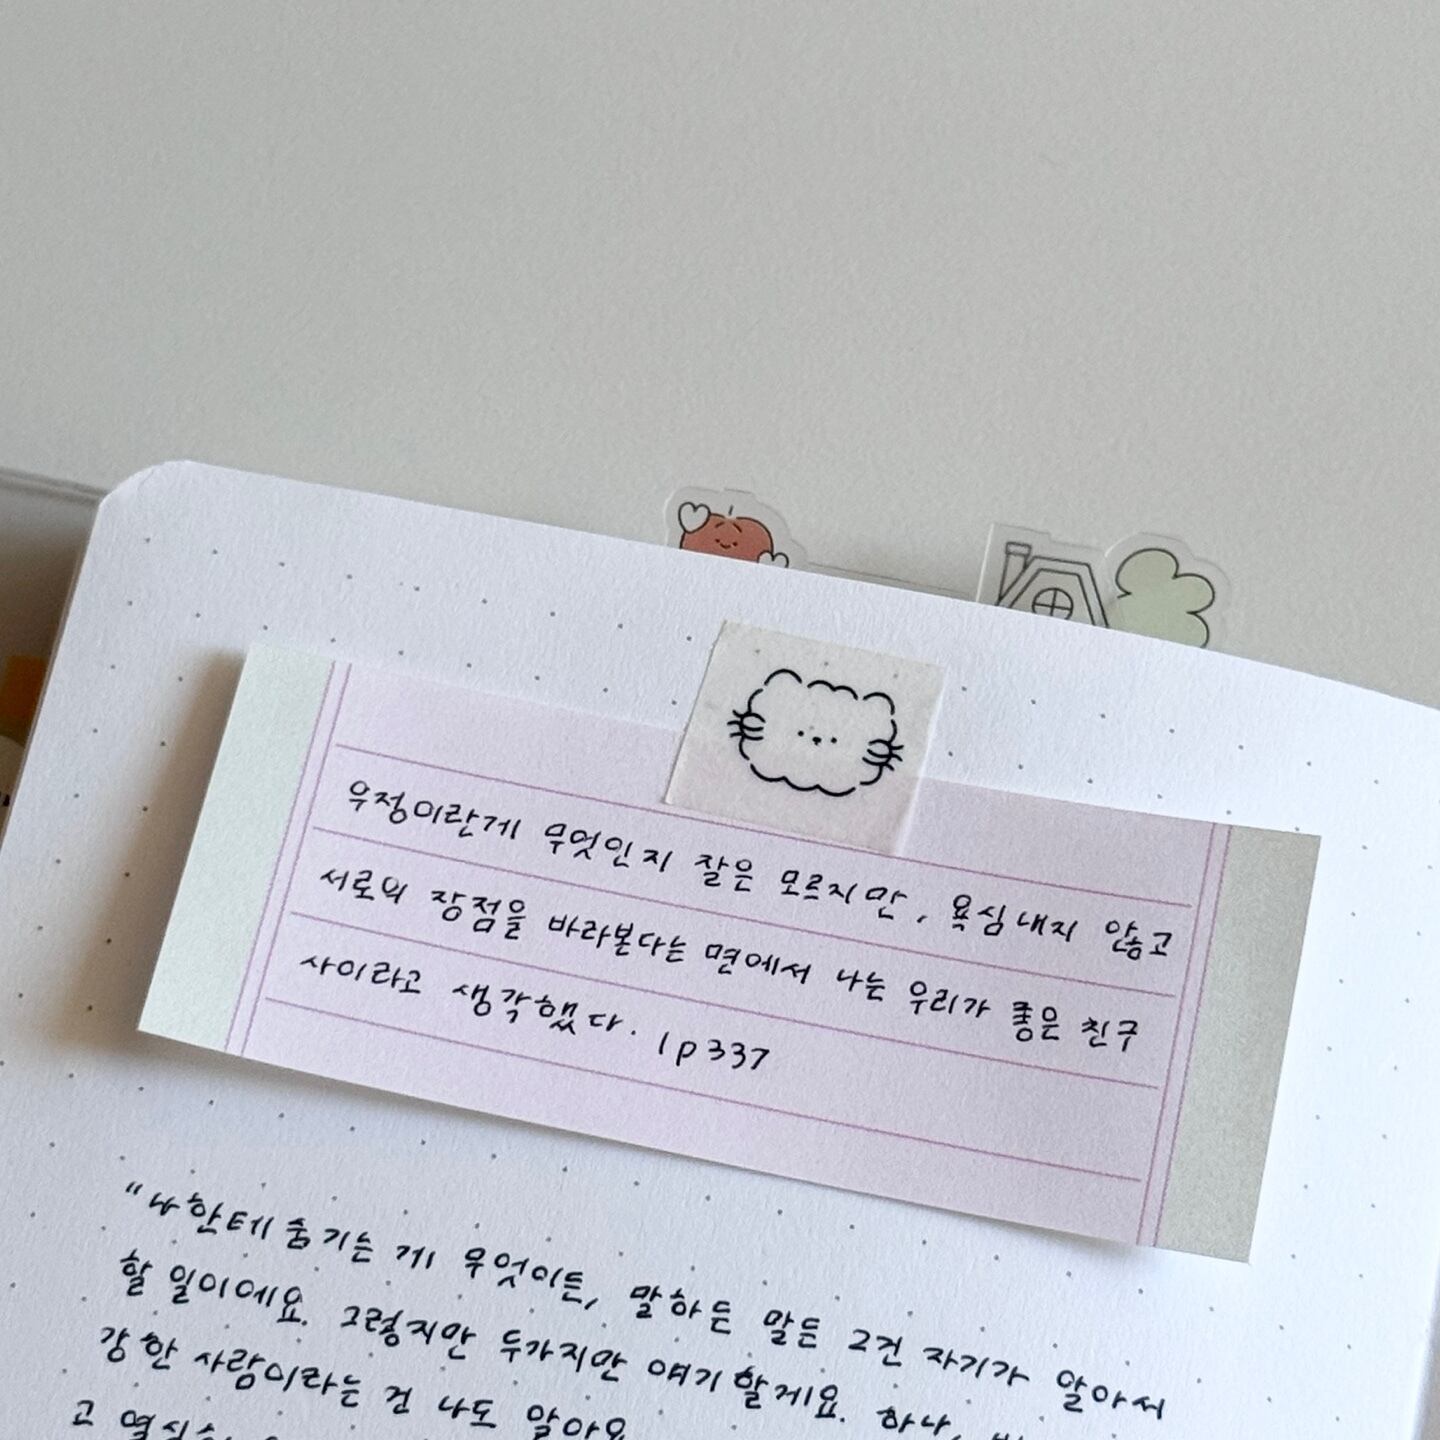 우정이란게 무엇인지 잘은 모르지만, 욕심내지 않고
서로의 장점을 바라본다는 면에서 나는 우리가 좋은 친구
사이라고 생각했다. | p337
"나한테 숨기는 게 무엇이든, 말하든 말든 그건 자기가 알아서
할 일이에요. 그렇지만 두가지만 얘기할게요. 하나,
강한 사람이라는 건 나도 알아요
고 열심히